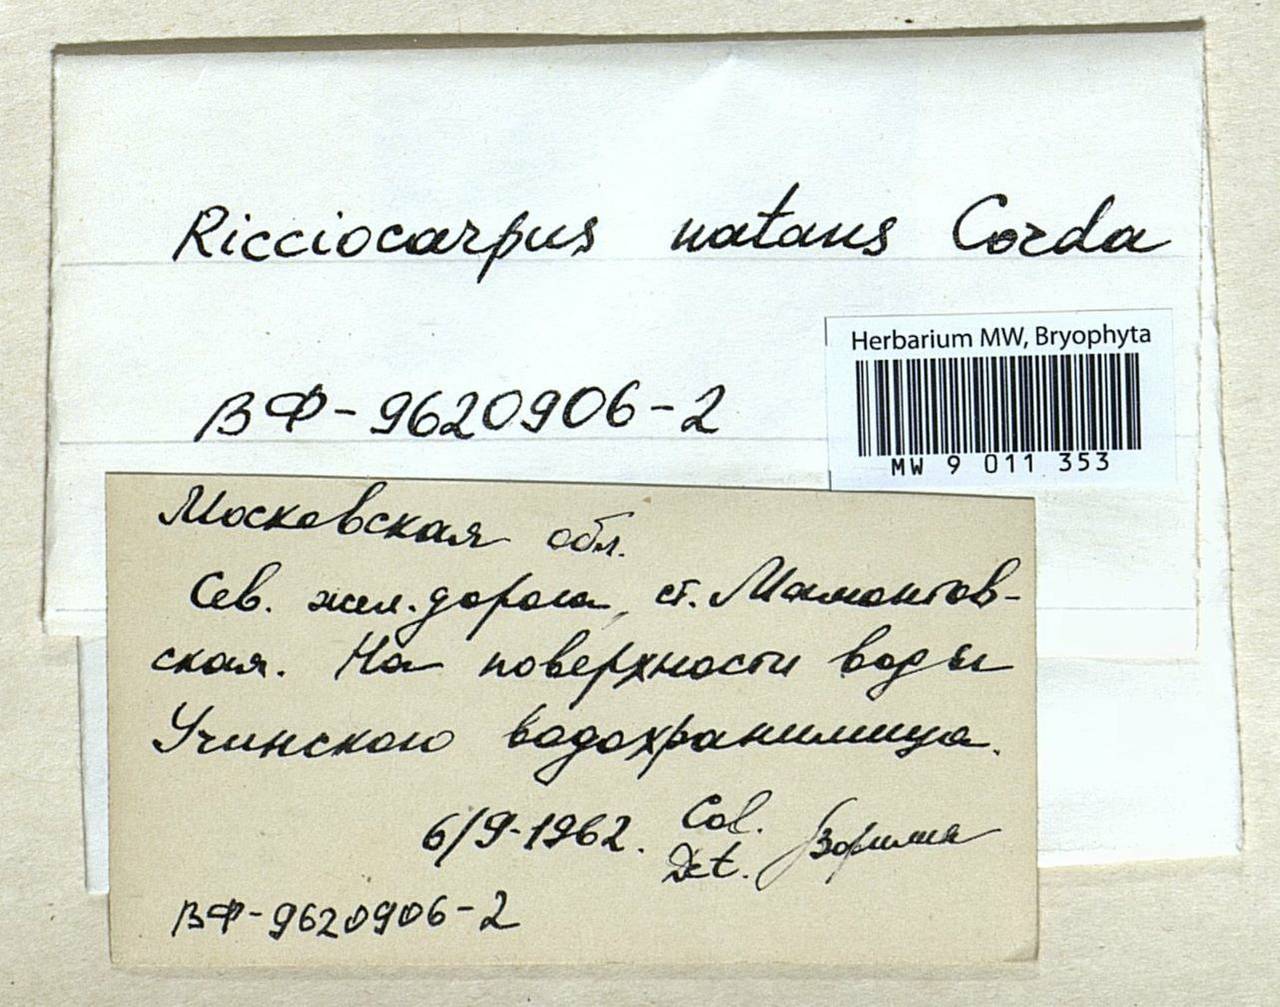 Ricciocarpus natans Corda
Herbarium MW, Bryophyta
ВФ-9620906-2
MW 9 011 353
Московская обл.
Сев. жел. дорога, ст. Мамонтов-
ская. На поверхности воды
Учинского водохранилища.
6/9-1962. Col.
Det.
ВФ-9620906-2